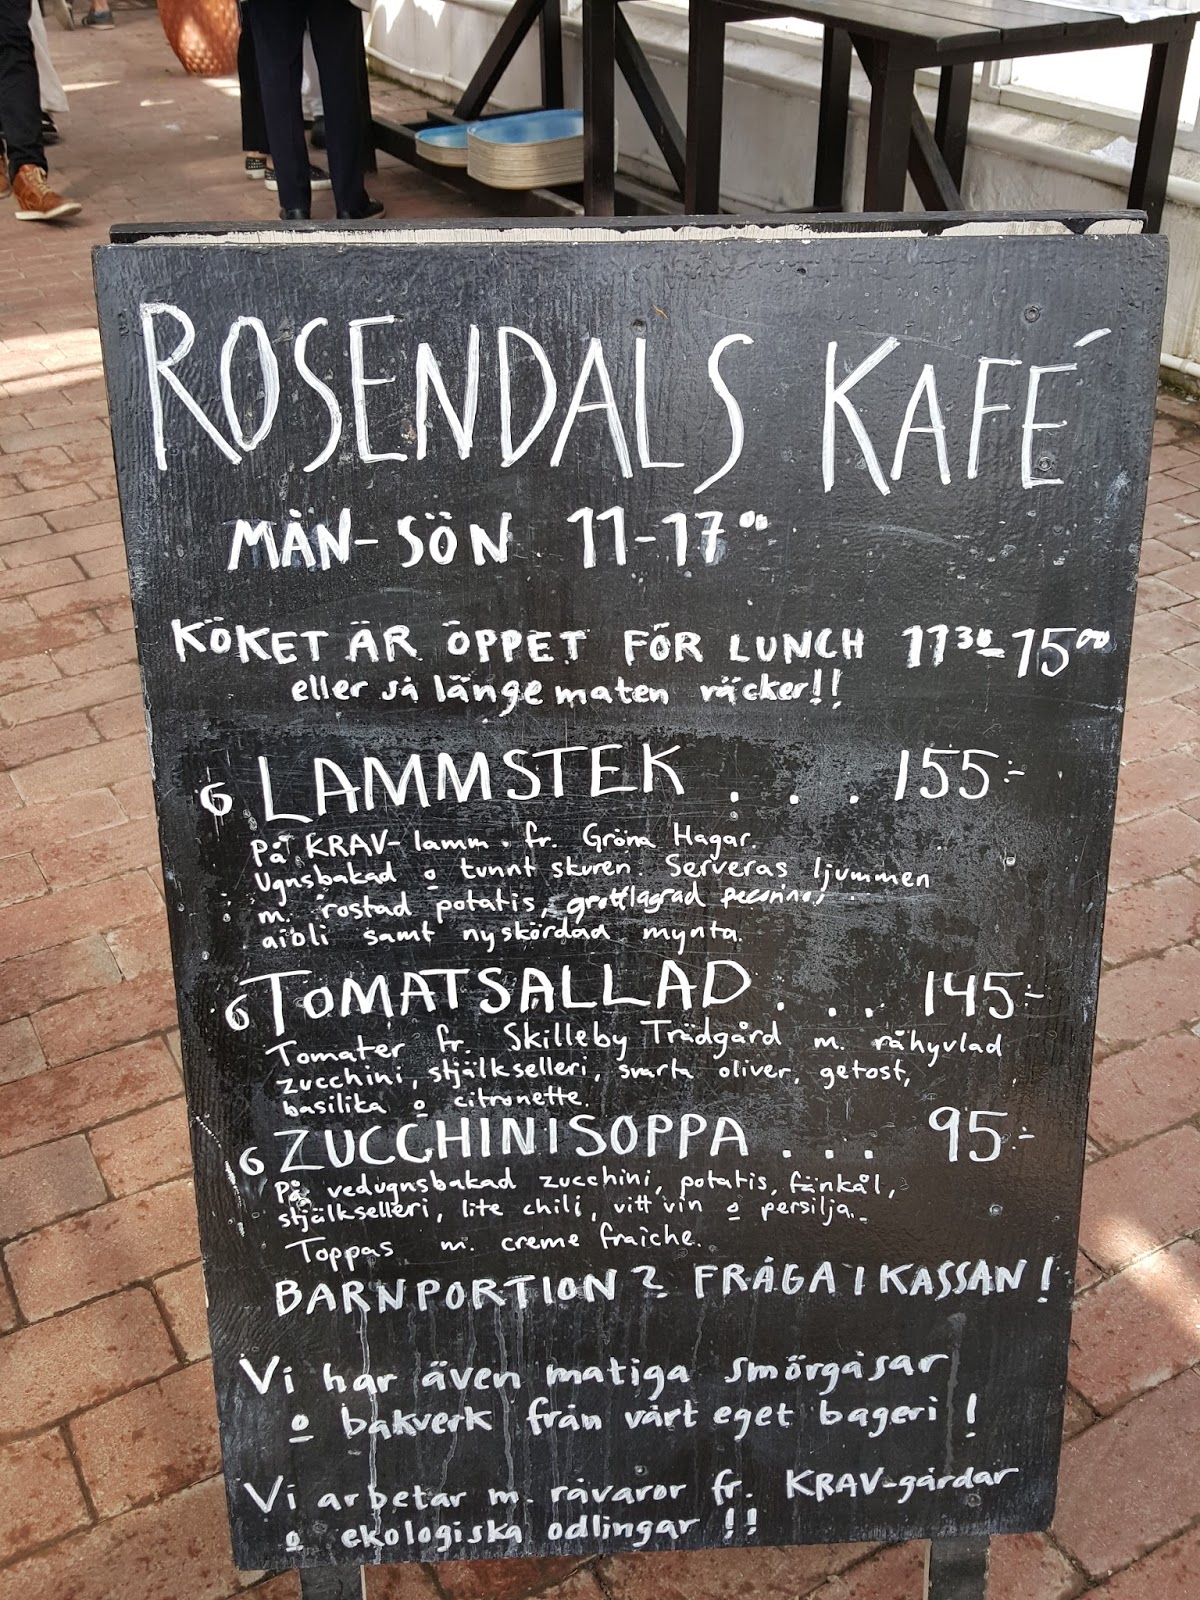 ROSENDALS KAFÉ
MÅN-SÖN 11-17⁰⁰
KÖKET ÄR ÖPPET FÖR LUNCH 11³⁰-15⁰⁰
eller så länge maten räcker!!
G LAMMSTEK . . . 155:-
På KRAV-lamm. fr. Gröna Hagar.
Ugnsbakad o tunnt skuren. Serveras ljummen
m. rostad potatis, grottlagrad pecorino,
aioli samt nyskördad mynta.
G TOMATSALLAD . . . 145:-
Tomater fr. Skilleby Trädgård m. råhyvlad
zucchini, stjälkselleri, svarta oliver, getost,
basilika o citronette.
G ZUCCHINISOPPA . . . 95:-
På vedugnsbakad zucchini, potatis, fänkål,
stjälkselleri, lite chili, vitt vin o persilja.
Toppas m. creme fraiche.
BARNPORTION? FRÅGA I KASSAN!
Vi har även matiga smörgåsar
o bakverk från vårt eget bageri!
Vi arbetar m. råvaror fr. KRAV-gårdar
o ekologiska odlingar!!